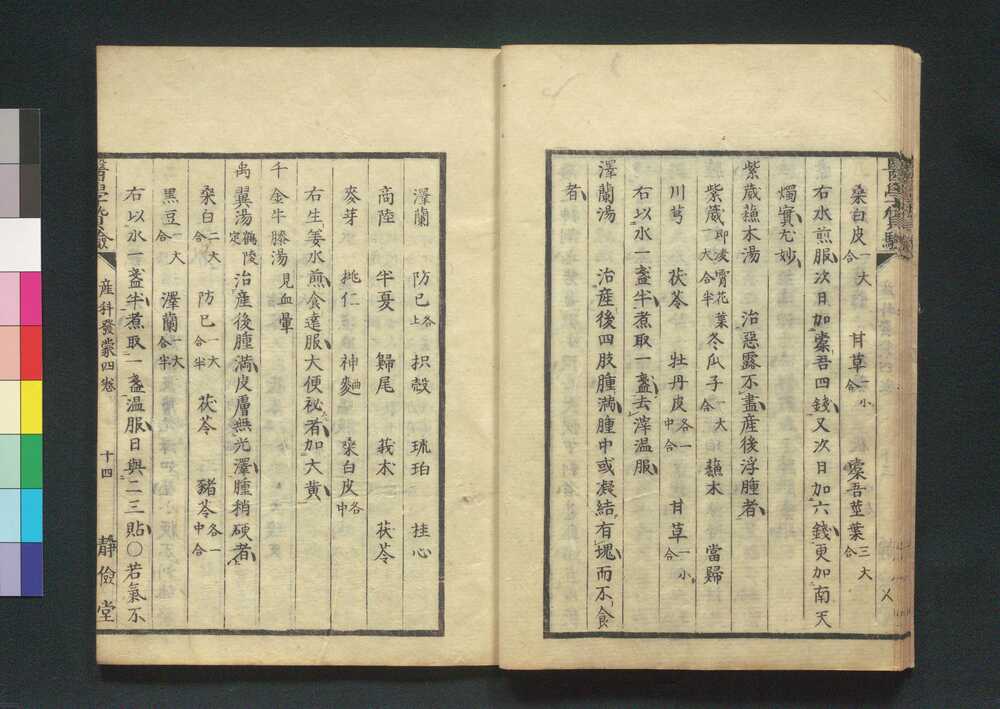 桒白皮一大合　甘草一小合　橐吾莖葉三大合
右水煎服次日加橐吾四錢又次日加六錢更加南天
燭實尤妙
紫葳蘓木湯　治惡露不盡產後浮腫者
紫葳即凌霄花葉一大合半　冬瓜子一大合　蘓木　當歸
川芎　茯苓　牡丹皮各一中合　甘草一小合
右以水一盞半煮取一盞去滓温服
澤蘭湯　治產後四肢腫滿腫中或凝結有塊而不食
者
澤蘭　防已各上　枳殼　琥珀　桂心
商陸　半夏　歸尾　莪朮　茯苓
麥芽　桃仁　神麯　桒白皮各中
右生姜水煎食遠服大便秘者加大黄
千金牛膝湯見血暈
禹翼湯鶴陵定　治產後腫滿皮膚無光澤腫稍硬者
桒白二大合　防已一大合半　茯苓　豬苓各一中合
黒豆一大合　澤蘭一大合半
右以水一盞半煮取一盞温服日與二三貼○若氣不
產科發蒙四卷　十四　靜儉堂